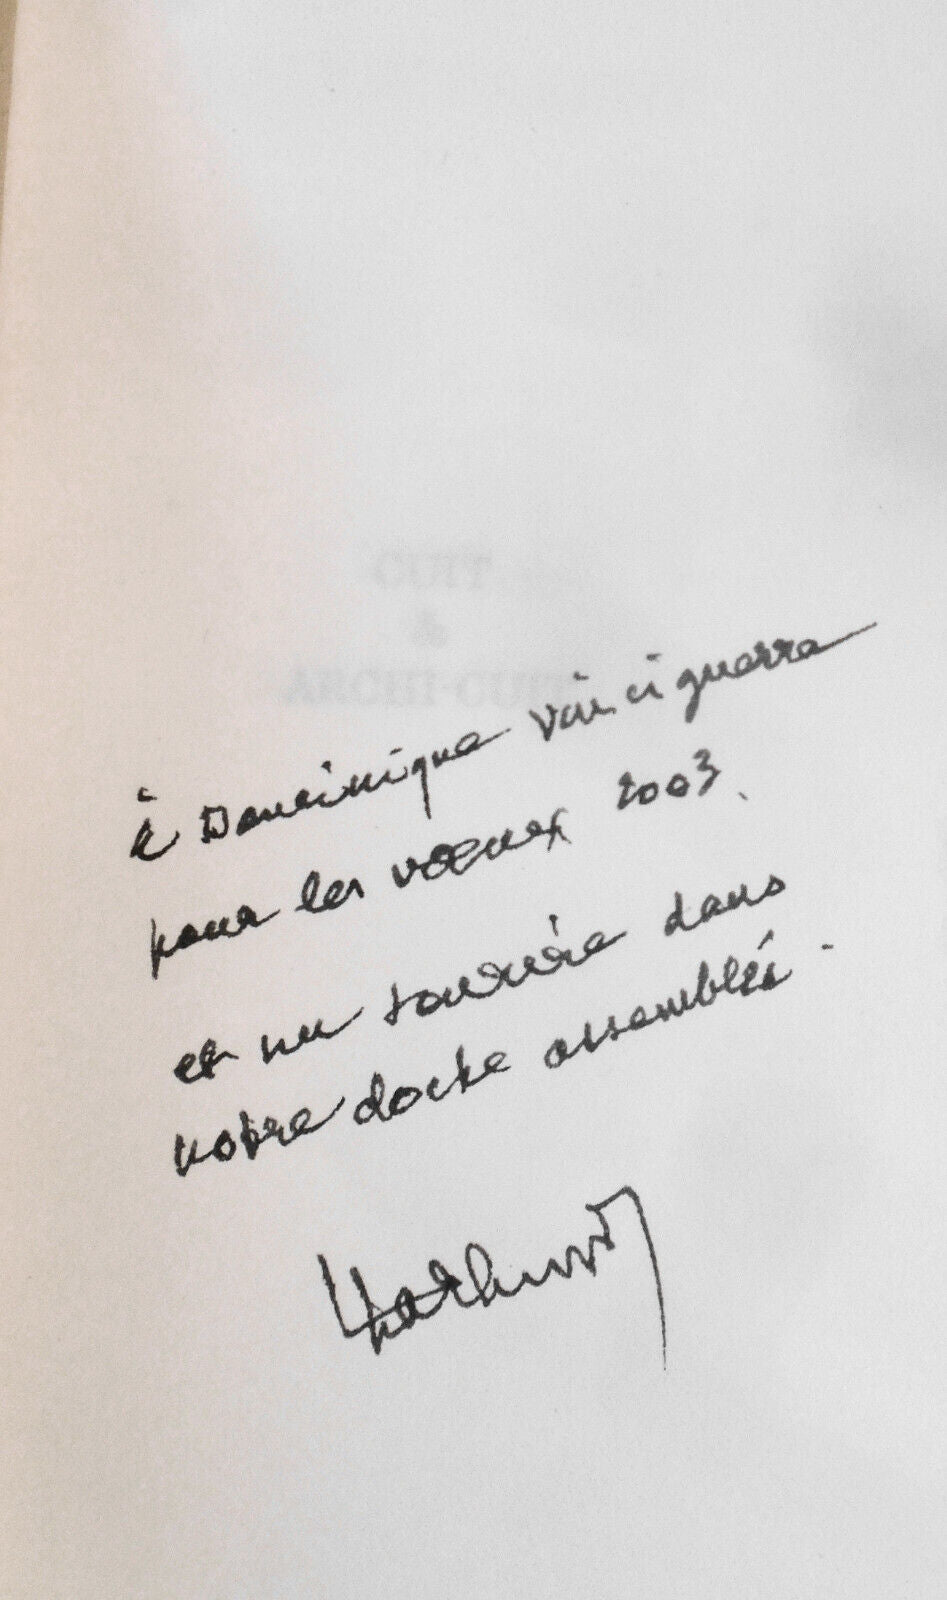 CUIT
&
ARCHI-CUIT
à Dominique Vinciguerra
pour les vœux 2003.
et un sourire dans
notre docte assemblée.